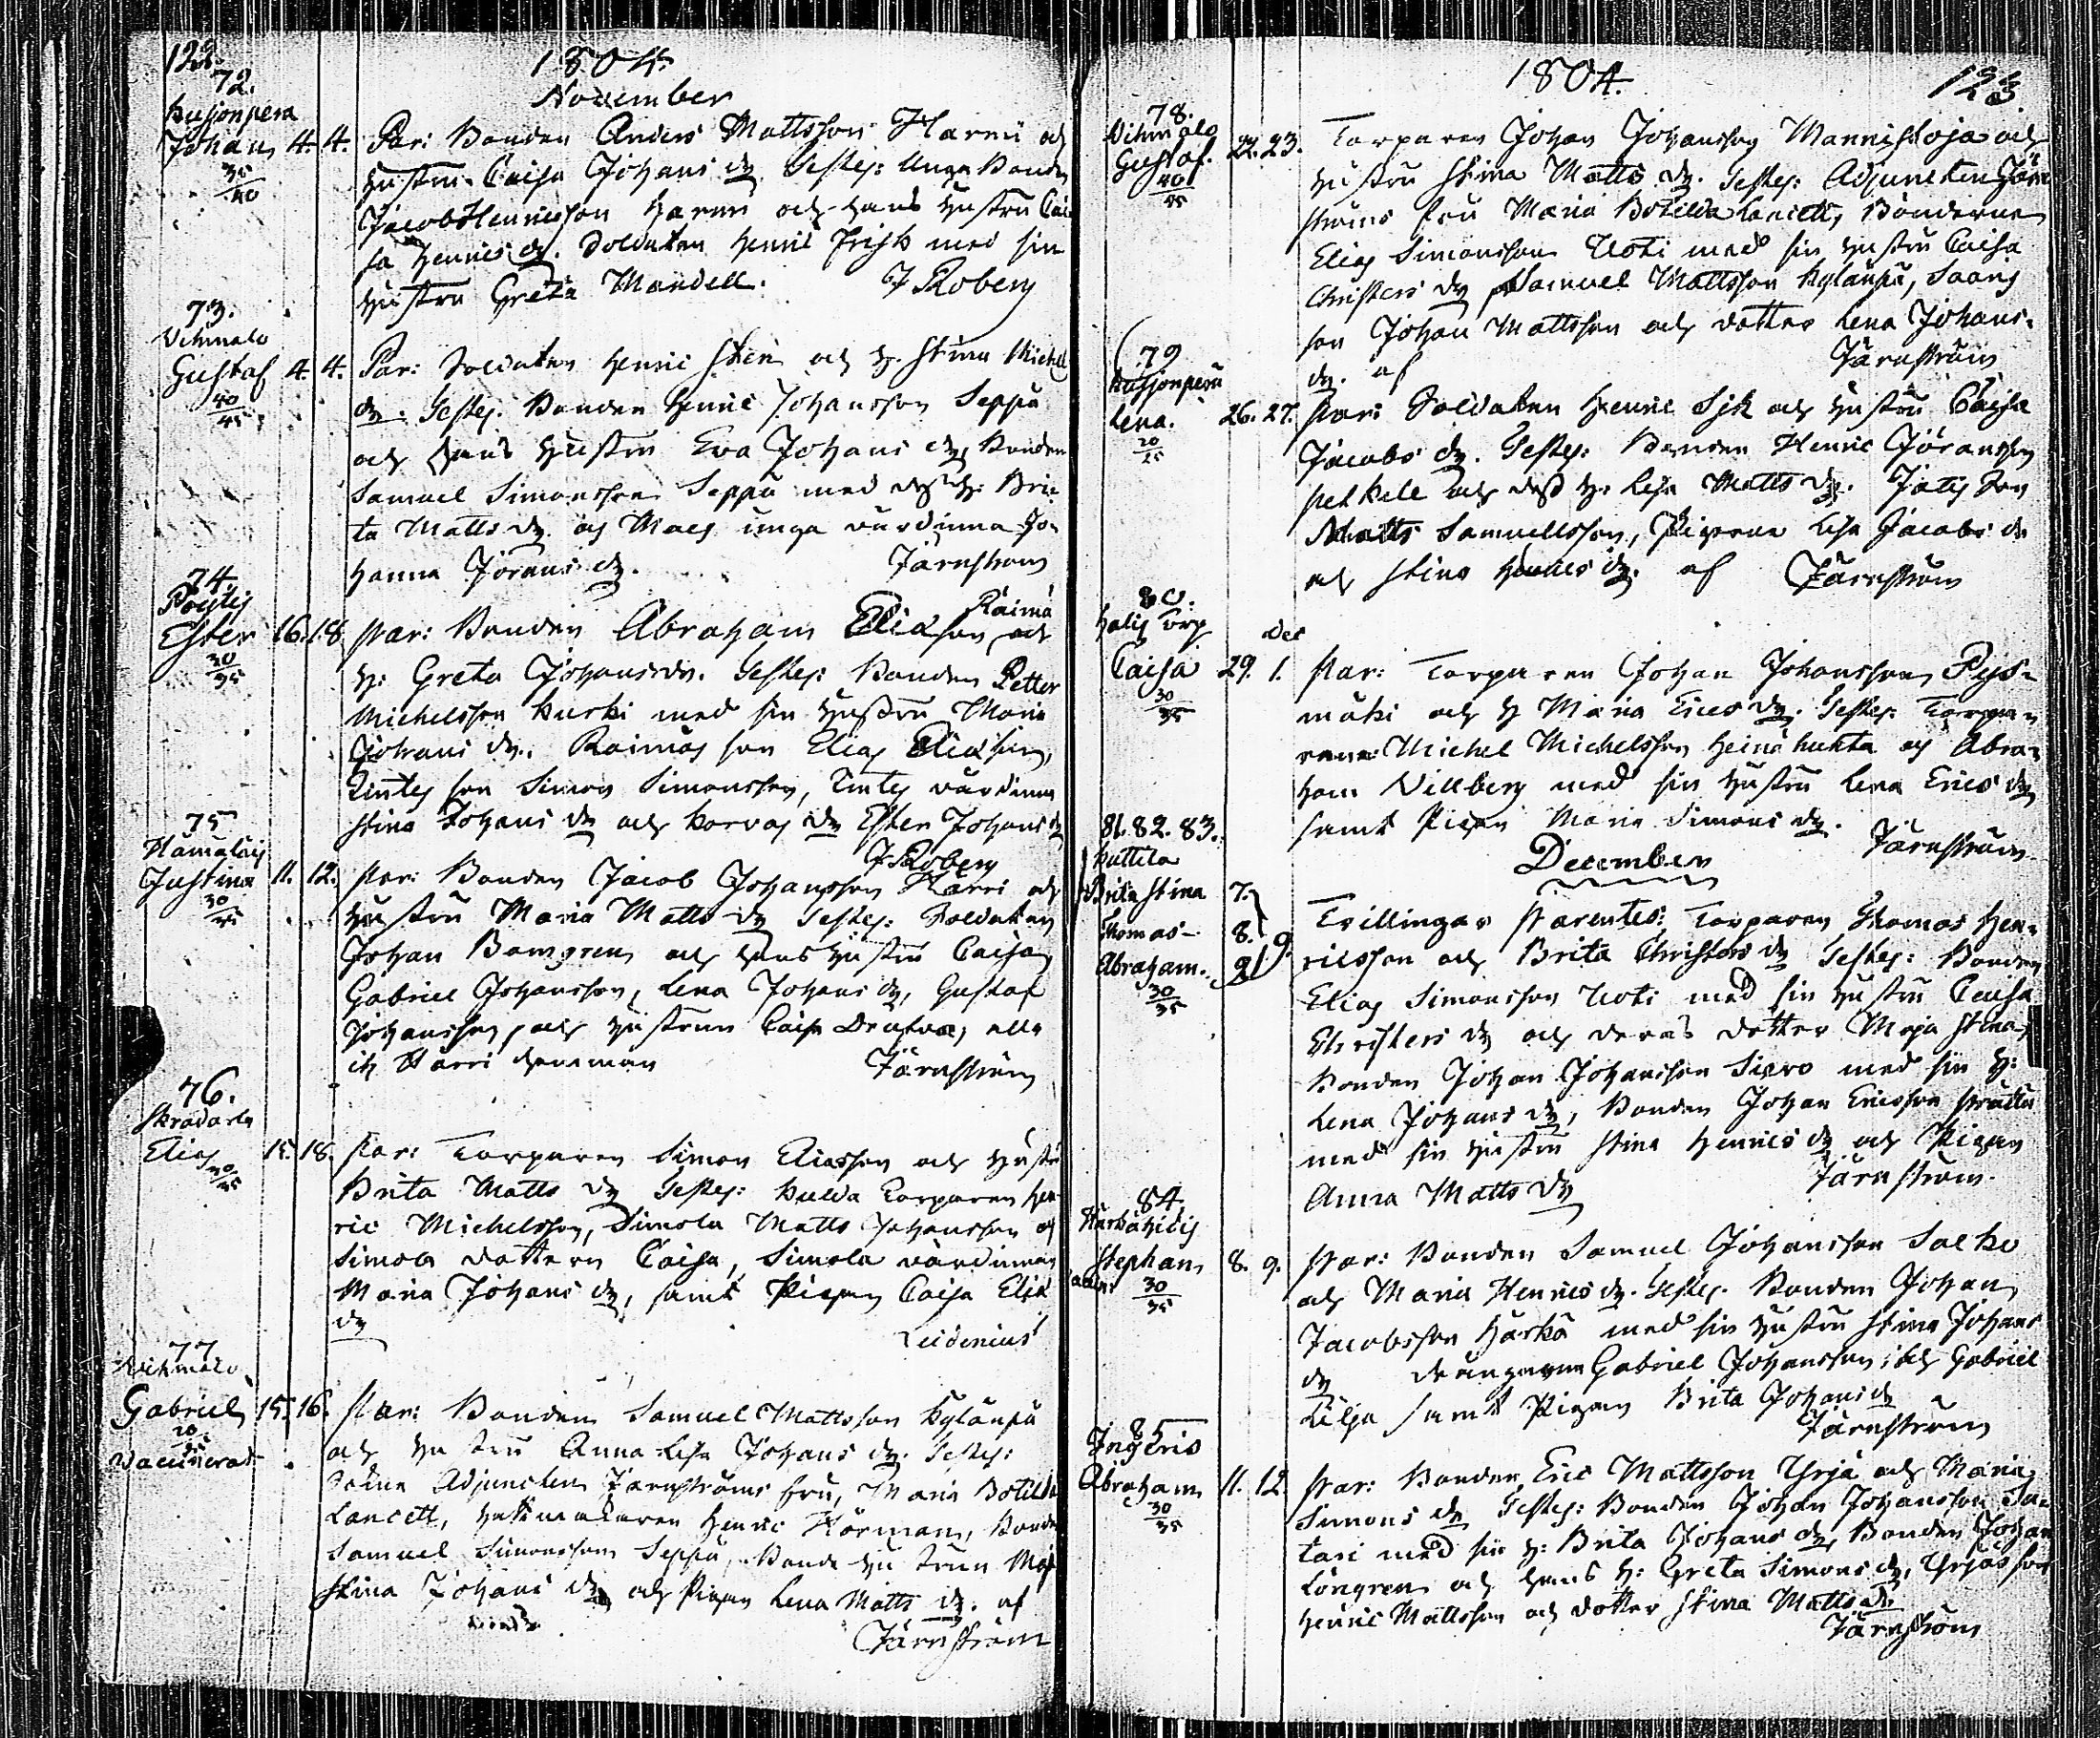 122.
1804.
November
72.
Husjonperä
Johan 4. 4.
35/40
Par: Bonden Anders Mattsson Harni och
hustru Caisa Johans dr. Testes: Unga Bonden
Jacob Henricsson Harni och hans hustru Cai
sa Henrics dr. Soldaten Henric Frisk med sin
hustru Greta Mandell. J Roberg
73.
Vehmalo
Gustaf 4. 4.
40/45
Par: Soldaten Henric Sten och h. Stina Michels
dr. Testes. Bonden Henric Johansson Seppä
och hans hustru Eva Johans dr, Bonden
Samuel Simonsson Seppä med dess h: Bri-
ta Matts dr. och unga värdinna Jo-
hanna Jörans dr. Järnström
74.
Pöytis
Ester 16. 18.
30/35
Par: Bonden Abraham Eliasson Raimä och
h: Greta Johans dr. Testes: Bonden Petter
Michelsson Kurki med sin hustru Maria
Johans dr. Raimäs son Elias Eliasson,
son Simon Simonsson, värdinna
Stina Johans dr och dr Ester Johans dr
J Roberg
75
Hamalais
Justina 11. 12.
30/35
Par: Bonden Jacob Johansson Harri och
hustru Maria Matts dr Testes: Soldaten
Johan Bomgren och hans hustru Caisa,
Gabriel Johansson, Lena Johans dr, Gustaf
Johansson, och hustrun Caisa alla
Harri hemman Järnström
76.
Elias 15. 18.
30/35
Par: Torparen Simon Eliasson och hustru
Brita Matts dr Testes: Torparen Hen
ric Michelsson, Simola Matts Johansson och
Simola dottern Caisa, Simola värdinnan
Maria Johans dr, samt Pigan Caisa Elia
dr Leidenius
77
Vehmalo
Gabriel 15. 16.
Vaccinerat
Par: Bonden Samuel Mattsson Kylänpä
och hustru Anna Lisa Johans dr. Testes:
Adjuncten Järnströms fru, Maria Botilda
Lancett, Hattmakaren Henric Hörman, Bonden
Samuel Simonsson Seppä, Bonde hustrun Maja
Stina Johans dr och Pigan Lena Matts dr. af
Järnström
1804.
123.
78.
Vehmalo
Gustaf. 22. 23.
40/45
Torparen Johan Johansson Mannistoja och
hustru Stina Matts dr. Testes: Adjuncten Järn
ströms fru Maria Botilda Lancett, Bönderne
Elias Simonsson Uoti med sin hustru Caisa
Christers dr, Samuel Mattsson Kylänpä,
son Johan Mattsson och dotter Lena Johans-
dr. af Järnström
79
Husjonperä
Lena. 26. 27.
20/25
Par: Soldaten Henric Sjk och hustru Caisa
Jacobs dr. Testes: Bonden Henric Jöransson
Perkele och dess h: Lisa Matts dr. Son
Matts Samuelsson, Pigorna Lisa Jacobs dr
och Stina Henrics dr. af Järnström
80.
Halis Torp
Dec
Caisa 29. 1.
30/35
Par: Torparen Johan Johansson Pys-
mäki och h Maria Erics dr. Testes: Torpa-
rena: Michel Michelsson Heinähuhta och Abra-
ham Villberg med sin hustru Lena Erics dr
samt Pigan Maria Simons dr. Järnström
December
81. 82. 83.
Huttila
Brita Stina 7.
Thomas 8. 9.
Abraham. 9
30/35
Trillingar Parentes: Torparen Thomas Hen-
ricsson och Brita Christers dr Testes: Bonden
Elias Simonsson Uoti med sin hustru Caisa
Christers dr och deras dotter Maja Stina,
Bonden Johan Johansson Siero med sin h:
Lena Johans dr, Bonden Johan Ericsson Prättä
med sin hustru Stina Henrics dr och Pigan
Anna Matts dr Järnström.
84.
Stephan 8. 9.
30/35
Par: Bonden Samuel Johansson Salko
och Maria Henrics dr. Testes. Bonden Johan
Jacobsson Härkä med sin hustru Stina Johans
dr Drängarna Gabriel Johansson och Gabriel
Lilja samt Pigan Brita Johans dr
Järnström
85
Ingeris
Abraham 11. 12.
30/35
Par: Bonden Eric Mattsson Yrjä och Maria
Simons dr Testes: Bonden Johan Johansson
tari med sin h: Brita Johans dr, Bonden Johan
Löngren och hans h: Greta Simons dr, Yrjäs son
Henric Mattsson och dotter Stina Matts dr.
Järnström